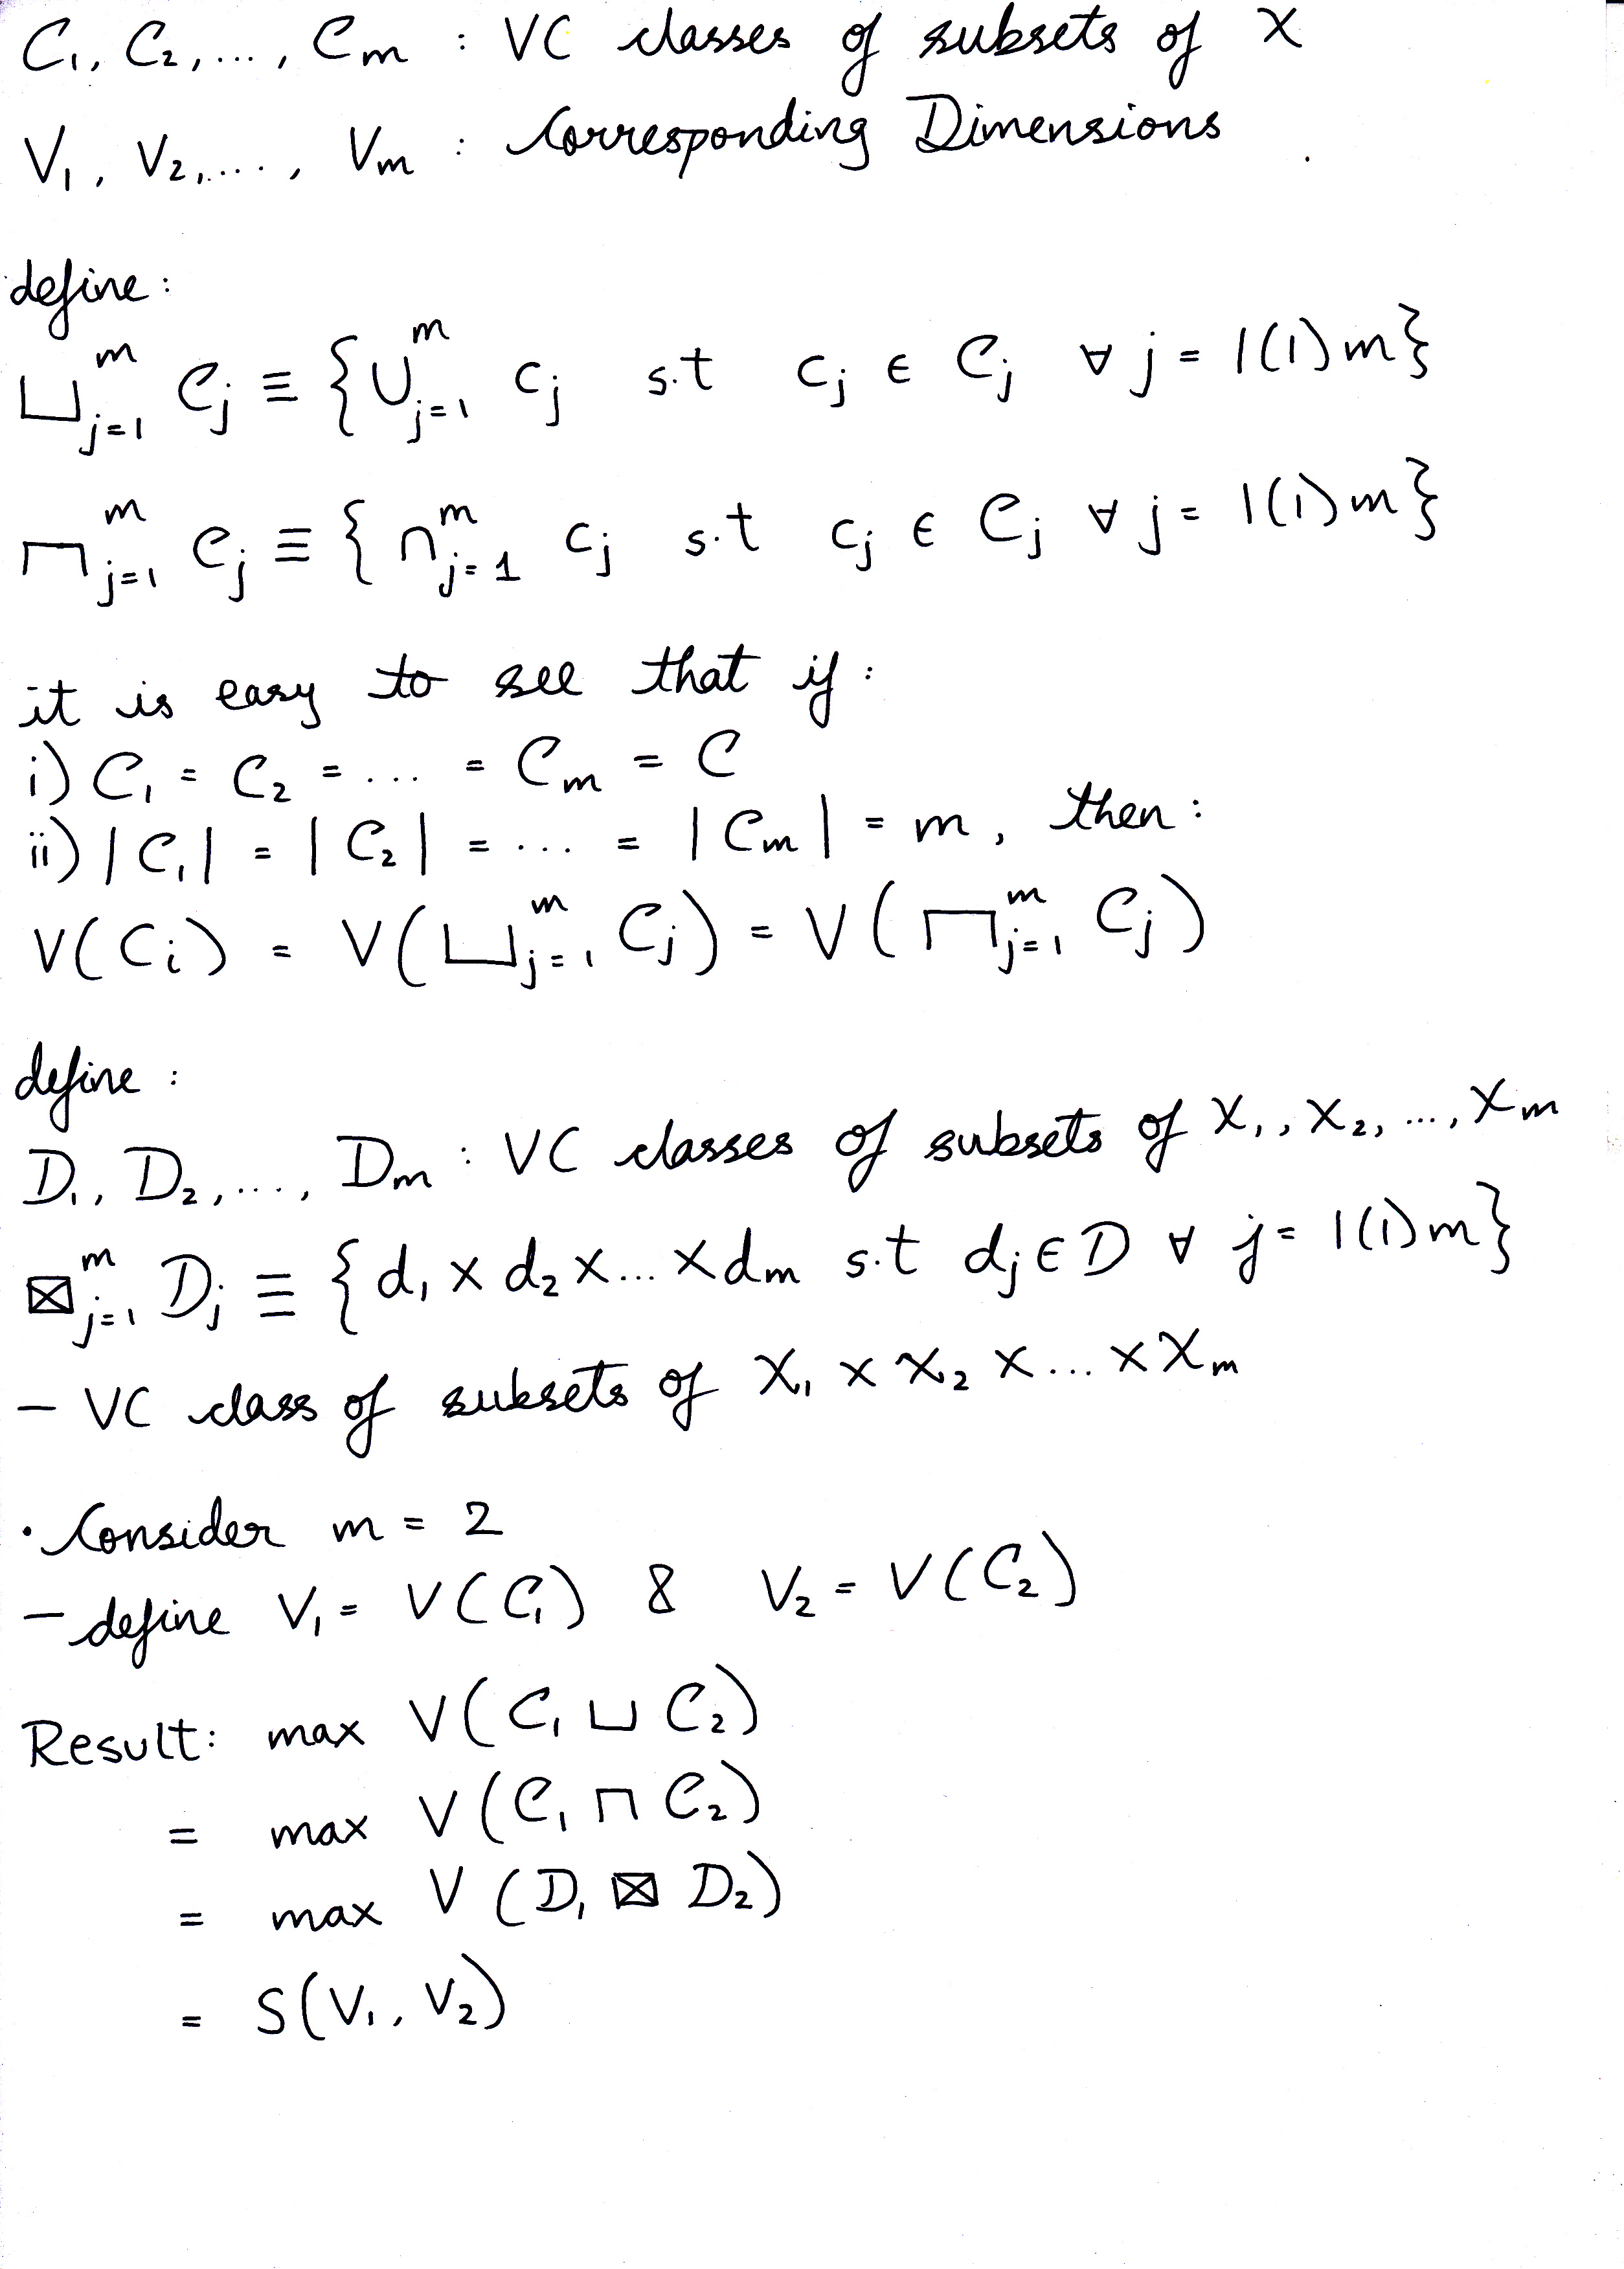 C₁, C₂,..., Cₘ : VC classes of subsets of X
V₁, V₂,..., Vₘ : Corresponding Dimensions
define:
⊔ⱼ₌₁ᵐ Cⱼ ≡ {∪ⱼ₌₁ᵐ cⱼ s.t cⱼ ∈ Cⱼ ∀ j = 1(1)m}
⊓ⱼ₌₁ᵐ Cⱼ ≡ {∩ⱼ₌₁ᵐ cⱼ s.t cⱼ ∈ Cⱼ ∀ j = 1(1)m}
it is easy to see that if:
i) C₁ = C₂ = ... = Cₘ = C
ii) |C₁| = |C₂| = ... = |Cₘ| = m, then:
V(Cᵢ) = V(⊔ⱼ₌₁ᵐ Cⱼ) = V(⊓ⱼ₌₁ᵐ Cⱼ)
define :
D₁, D₂,..., Dₘ : VC classes of subsets of X₁, X₂, ..., Xₘ
⊠ⱼ₌₁ᵐ Dⱼ ≡ {d₁ x d₂ x ... x dₘ s.t dⱼ ∈ D ∀ j = 1(1)m}
– VC class of subsets of X₁ x X₂ x ... x Xₘ
• Consider m = 2
– define V₁ = V(C₁) & V₂ = V(C₂)
Result: max V(C₁ ⊔ C₂)
= max V(C₁ ⊓ C₂)
= max V(D₁ ⊠ D₂)
= S(V₁, V₂)